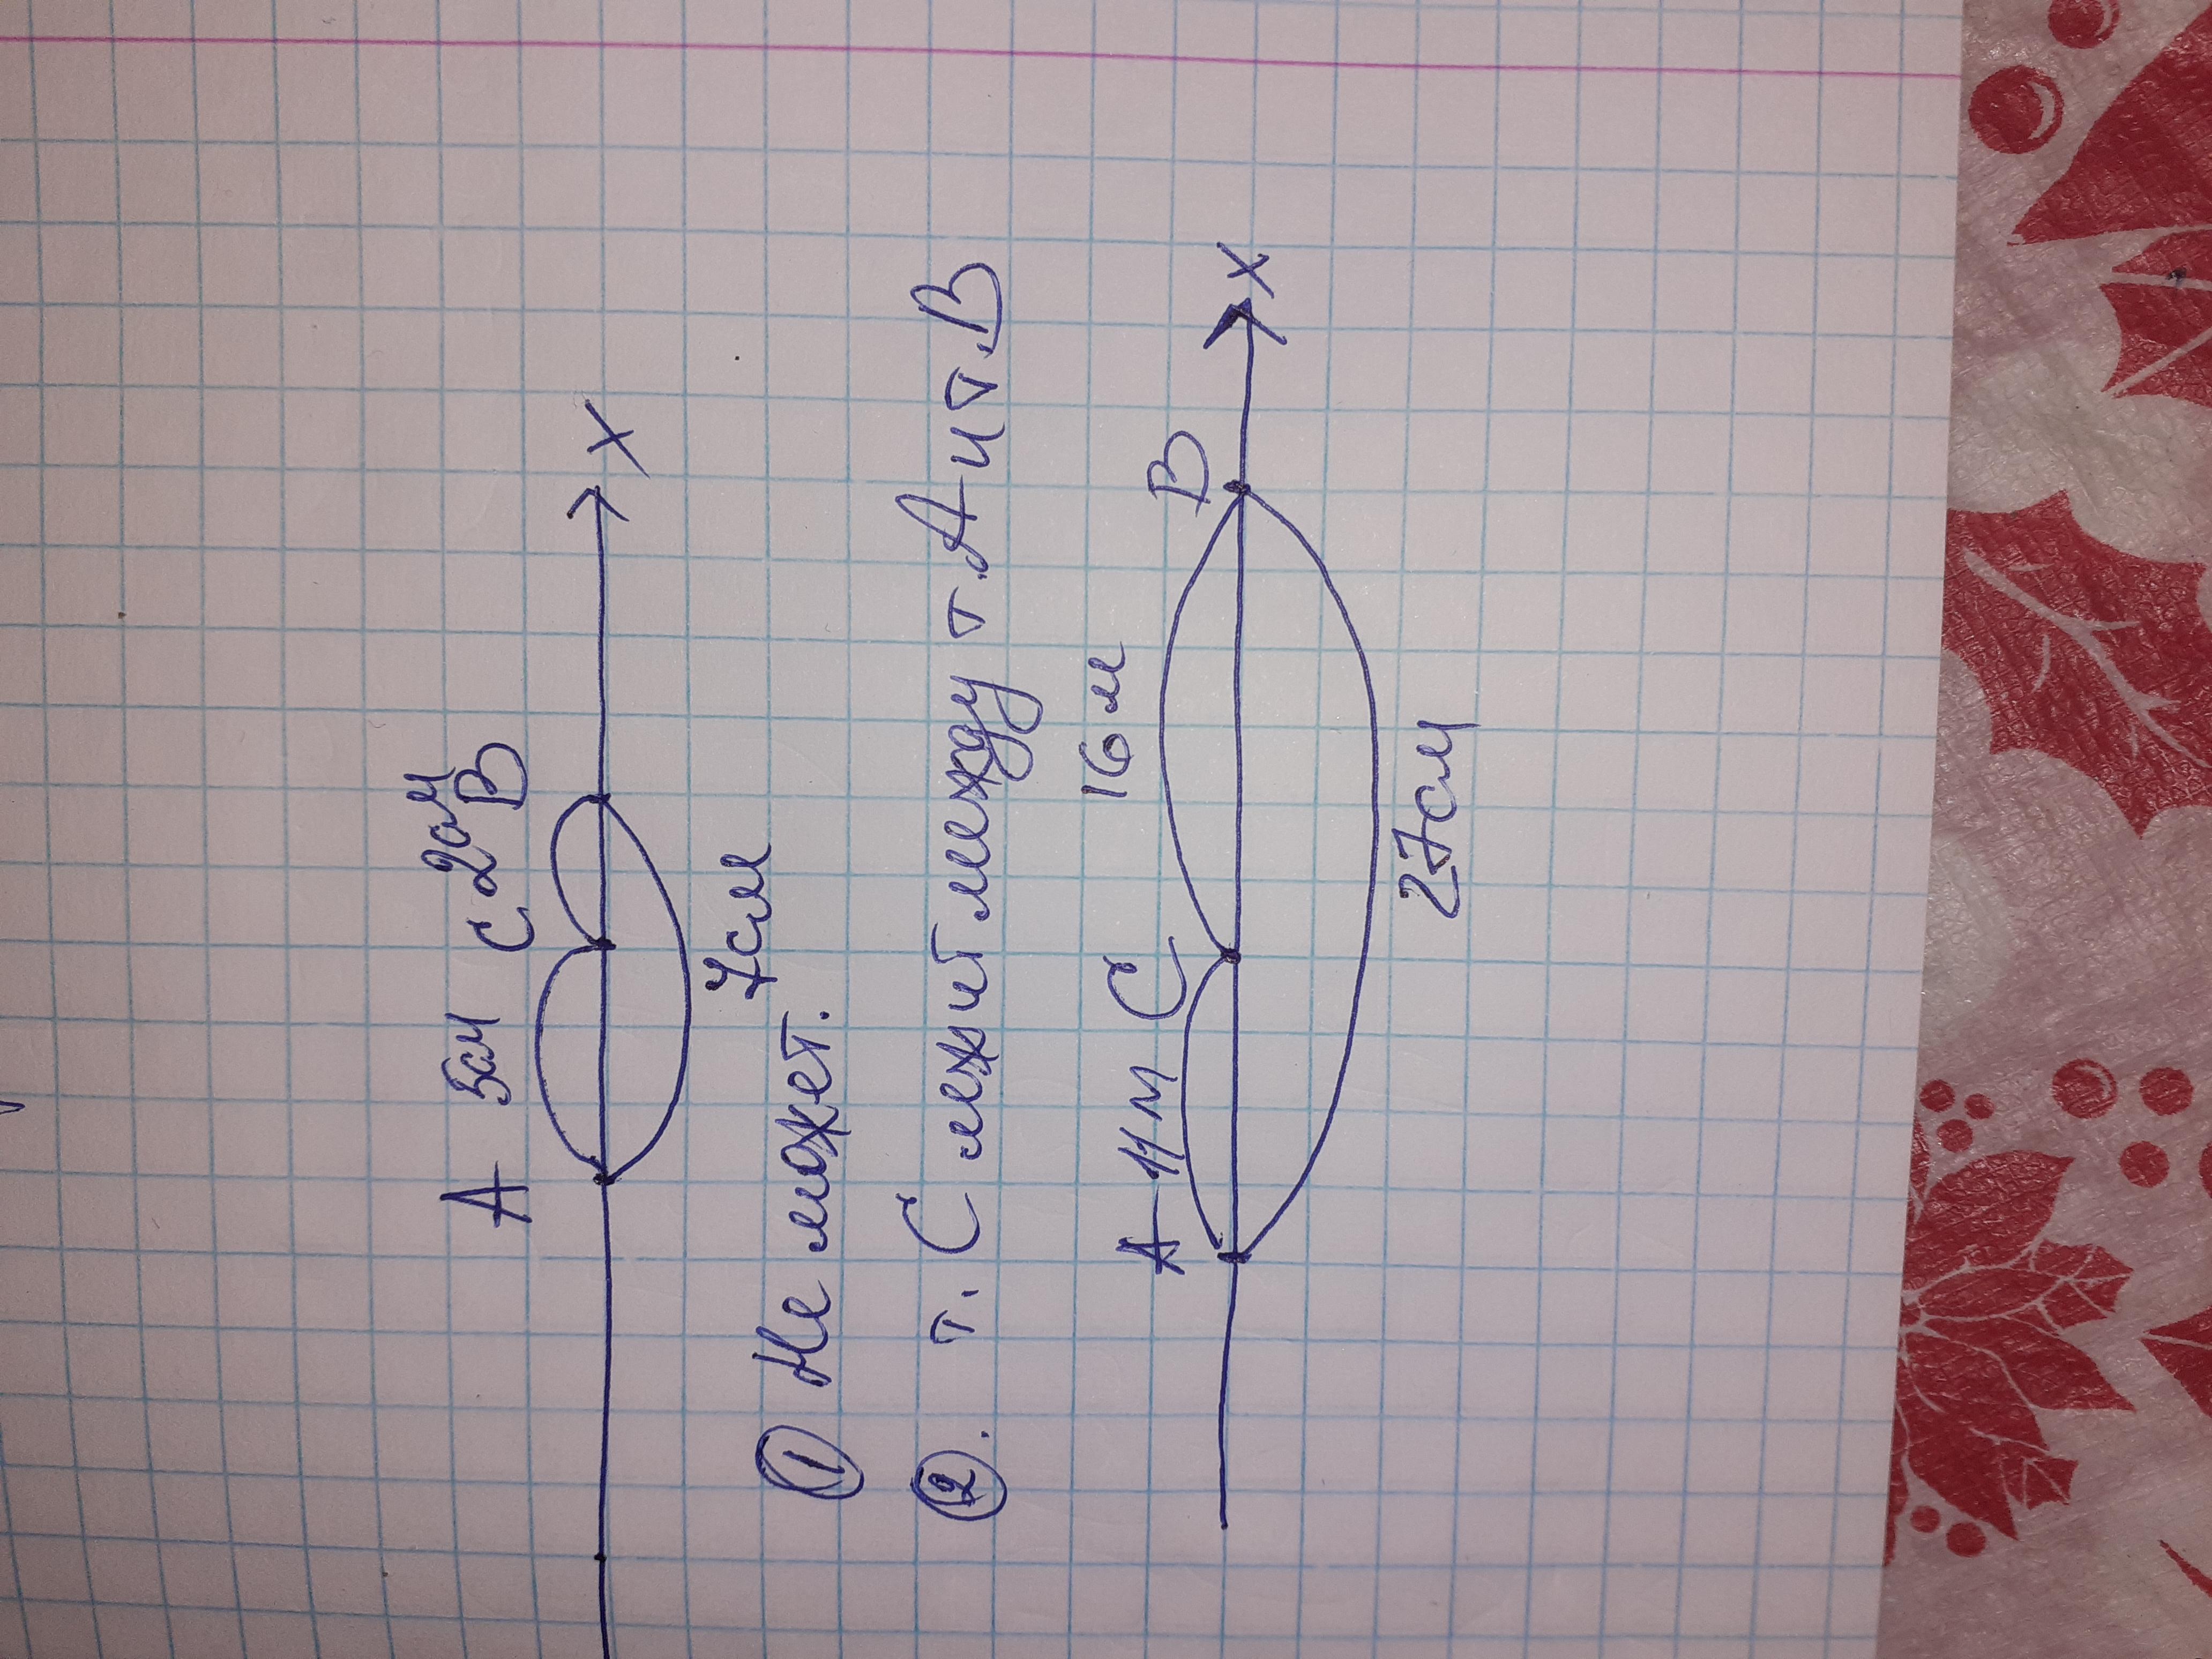 А 5см С 2см В
х
7см
① Не может.
②. т. С лежит между т. А и т. В
А 11м С 16м В
х
27см